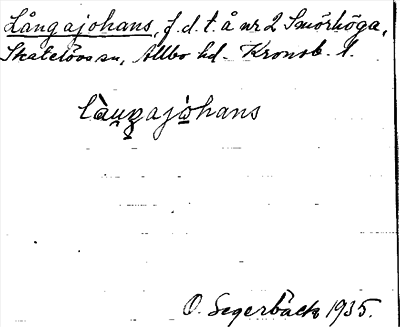 Långajohans, f. d. t. å nr 2 Smörhöga,
Skatelövs sn, Allbo hd. Kronob. l.
làųgajo̱hans
O. Segerbäck 1935.